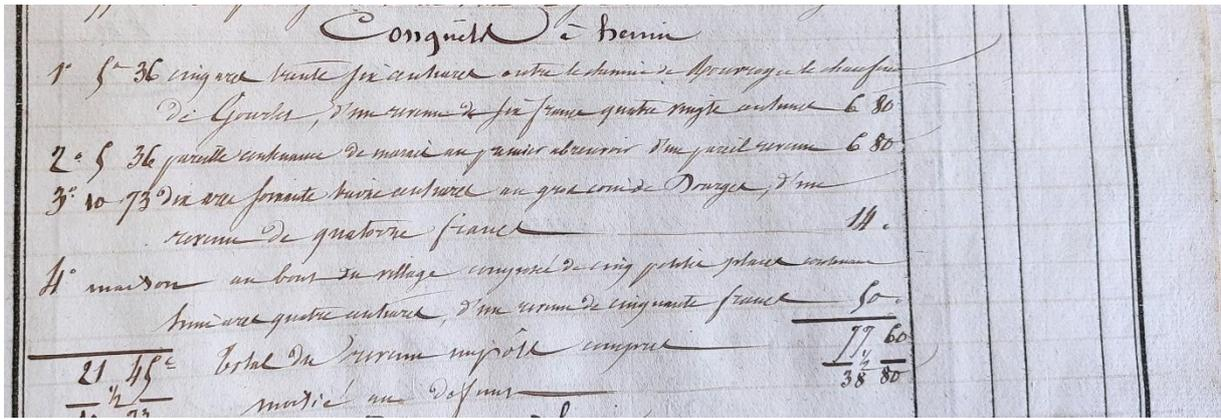 Conquêts à henin
1° 5ª 36 cinq ares trente six centiares entre le chemin de et le
de Gourlet, d'un revenu de six francs quatre vingts centimes 6 80
2° 5 36 pareille contenance de marais au premier abreuvoir d'un pareil revenu 6 80
3° 10 73 dix ares soixante treize centiares au gros coin de Dourges, d'un
revenu de quatorze francs 14 .
4° maison au bout du village composé de cinq petites places contenant
ares quatre centiares, d'un revenu de cinquante francs 50 .
21 45ᶜ Total du revenu impôts compris 77 60
½ moitié au défunt ½ 38 80